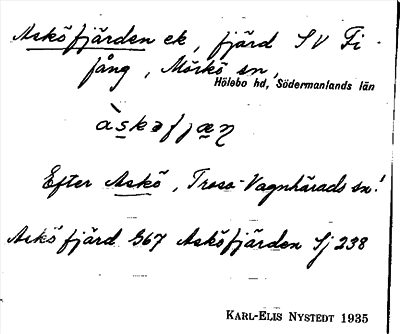 Asköfjärden ek, fjärd SV Fi-
fång, Mörkö sn,
Hölebo hd, Södermanlands län
àskəfjæṇ
Efter Askö, Trosa-Vagnhärads sn!
Askö fjärd G67 Asköfjärden Sj 238
KARL-ELIS NYSTEDT 1935